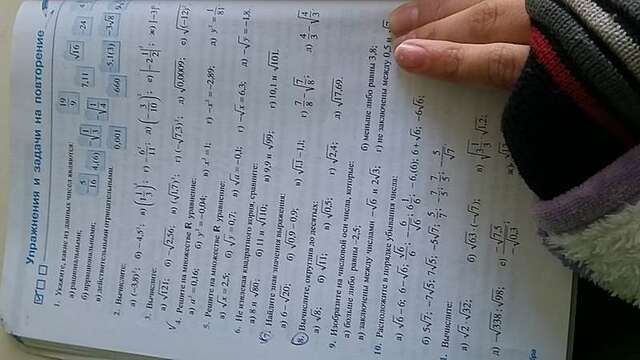 Упражнения и задачи на повторение
1. Укажите, какие из данных чисел являются:
а) рациональными;
б) иррациональными;
в) действительными отрицательными.
19/9 √16 -24
5/16 4,(6) -√(1/3) -√(1/4) 7,11 -3√8
0,001 660 -5,1(3)
2. Вычислите:
а) (-3,8)²; б) -4,5²; в) (1 1/3)²; г) -6²/11; д) (-3/10)²; е) |-2 1/2|²; ж) |-3|
3. Вычислите:
а) √121; б) -√2,56; в) (√1,7)²; г) (-√7,3)²; д) √0,0009; е) √(-12)
4. Решите на множестве R уравнение:
а) a² = 0,16; б) y² = -0,04; в) x² = 1; г) -x² = -2,89; д) y² = 1/8;
5. Решите на множестве R уравнение:
а) √x = 2,5; б) √y = 0,7; в) √a = -0,1; г) -√x = 6,3; д) -√y = -1,8.
6. Не извлекая квадратного корня, сравните:
а) 8 и √80; б) 11 и √110; в) 9,9 и √99; г) 10,1 и √101.
7. Найдите знак значения выражения:
а) 6 - √20; б) √0,9 - 0,9; в) √1,1 - 1,1; г) 7/8 - √(7/8); д) 4/3 - √(4/3)
8. Вычислите, округлив до десятых:
а) √8; б) √11; в) √0,5; г) √2,4; д) √17,69.
9. Изобразите на числовой оси числа, которые:
а) больше либо равны -2,5; б) меньше либо равны 3,8;
в) заключены между числами -√6 и 2√3; г) не заключены между 0,5 и
10. Расположите в порядке убывания числа:
а) √6 - 6; 6 - √6; √6/6; -6/√6; 6 1/6; -6,(6); 6 + √6; -6√6;
б) 5√7; -7√5; 7√5; -5√7; 5/7; -7/5; 7/5; -5/√7
Вычислите:
а) √2 · √32; б) √63 · (-√7); в) √(3 1/3) · √1,2;
д) -√338 : √98; е) -√7,5/-√0,3; ж)